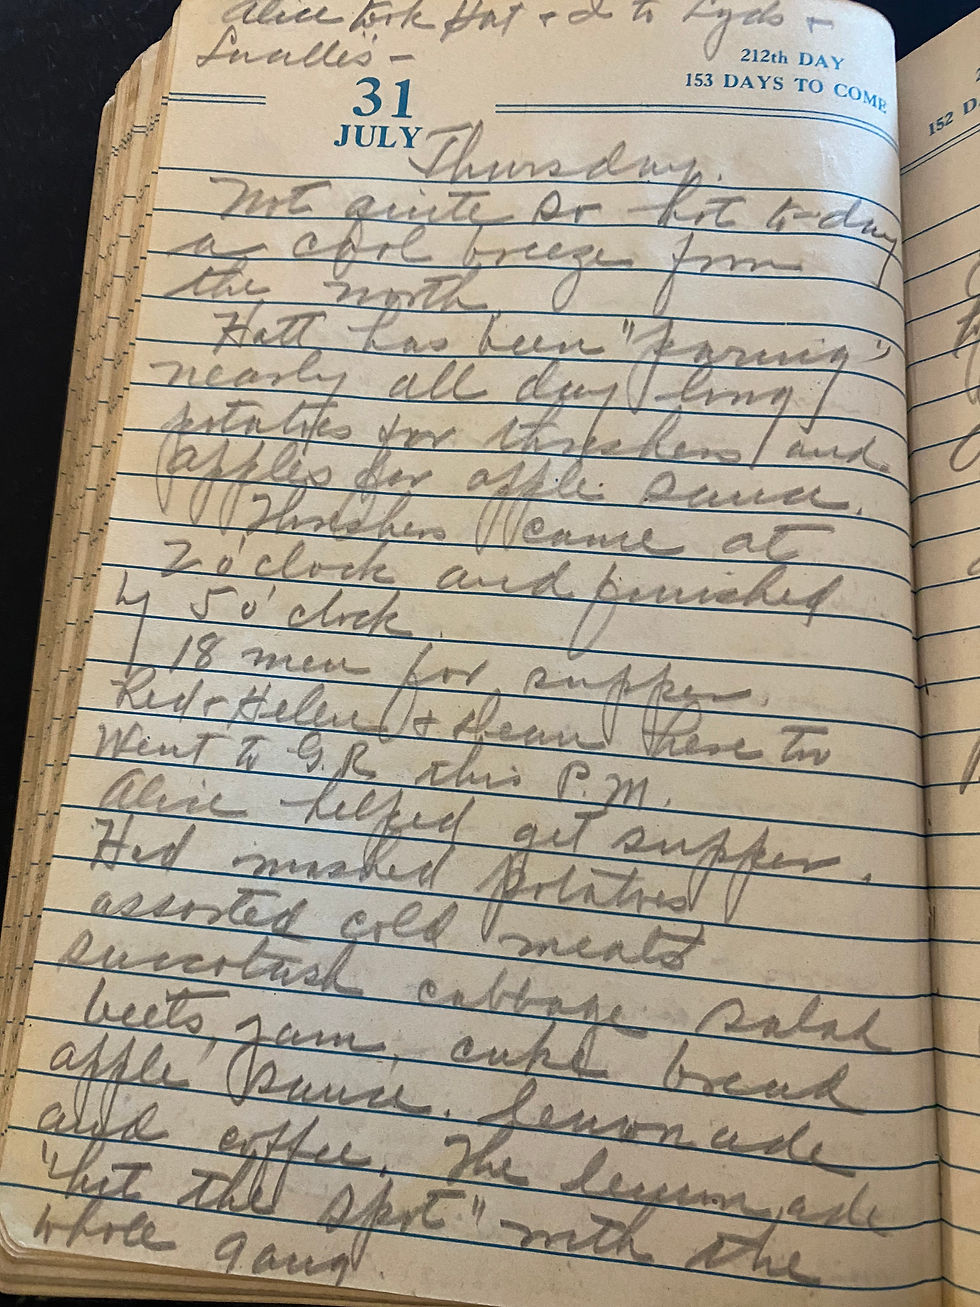 Alice took Hat + I to Lyds +
Lucille's -
212th DAY
31
153 DAYS TO COME
JULY
Thursday.
Not quite so hot to-day
a cool breeze from
the north.
Hatt has been "paring"
nearly all day long
potatoes for threshers and
apples for apple sauce.
Threshers came at
2 o'clock and finished
by 5 o'clock.
18 men for supper.
Red + Helen + Dean here too
Went to G.R. this P.M.
Alice helped get supper.
Had mashed potatoes
assorted cold meats
succotash cabbage salad
beets, jam, cake bread
apple sauce. lemonade
and coffee. The lemonade
"hit the spot" with the
whole gang.
152 D